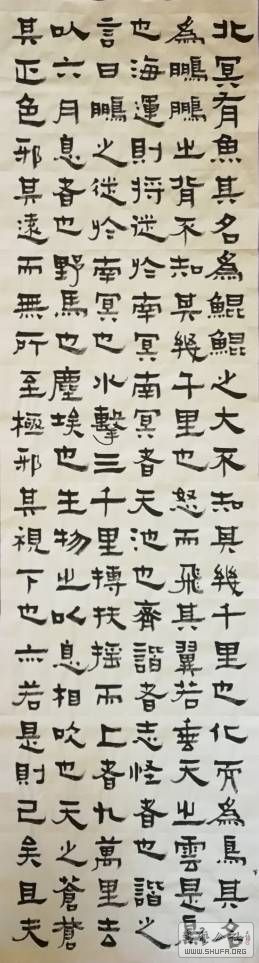 北冥有魚其名為鯤鯤之大不知其幾千里也化而為鳥其名
為鵬鵬之背不知其幾千里也怒而飛其翼若垂天之雲是鳥
也海運則將徙於南冥南冥者天池也齊諧者志怪者也諧之
言曰鵬之徙於南冥也水擊三千里摶扶搖而上者九萬里去
以六月息者也野馬也塵埃也生物之以息相吹也天之蒼蒼
其正色邪其遠而無所至極邪其視下也亦若是則已矣且夫
WWW.SHUFA.ORG